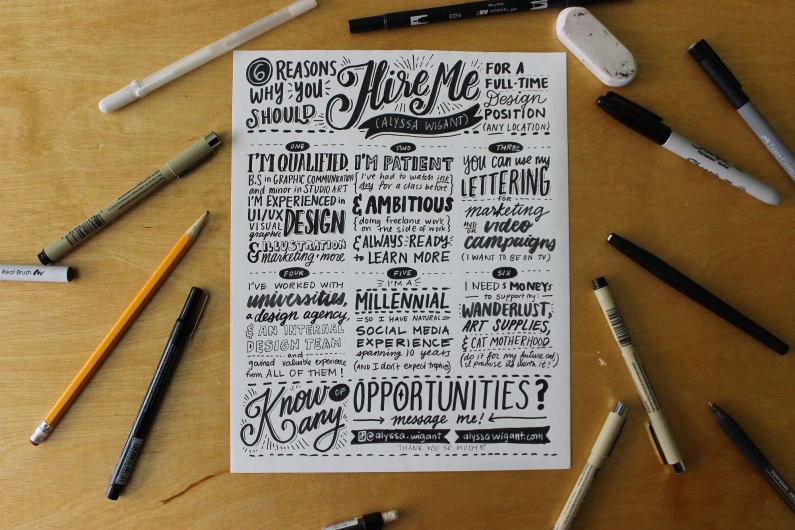 6 REASONS
WHY YOU
SHOULD
Hire Me
(ALYSSA WIGANT)
FOR A
FULL-TIME
Design
POSITION
(ANY LOCATION)
ONE
I'M QUALIFIED,
B.S in GRAPHIC COMMUNICATION
and minor in STUDIO ART
I'M EXPERIENCED in
UI/UX
VISUAL
graphic
DESIGN
& ILLUSTRATION
marketing + more
TWO
I'M PATIENT
(I've had to watch ink
dry for a class before)
& AMBITIOUS
(doing freelance work
on the side of work)
& ALWAYS READY
to LEARN MORE
THREE
you can use my
LETTERING
for
marketing
AND OR video
campaigns
(I WANT TO BE ON TV)
FOUR
I'VE WORKED WITH
universities,
a design agency,
& AN INTERNAL
DESIGN TEAM
and
gained valuable experience
from ALL OF THEM!
FIVE
I'M A
MILLENNIAL
SO I HAVE NATURAL
SOCIAL MEDIA
EXPERIENCE
spanning 10 years
(AND I don't expect trophies)
SIX
I NEED $ MONEY $
to support my:
WANDERLUST,
ART SUPPLIES,
& CAT MOTHERHOOD
(do it for my future cat,
I promise it's worth it!)
Know OF
any
OPPORTUNITIES?
message me!
@alyssa.wigant
alyssawigant.com
THANK YOU SO MUCH
Real Brush
N25
ABT